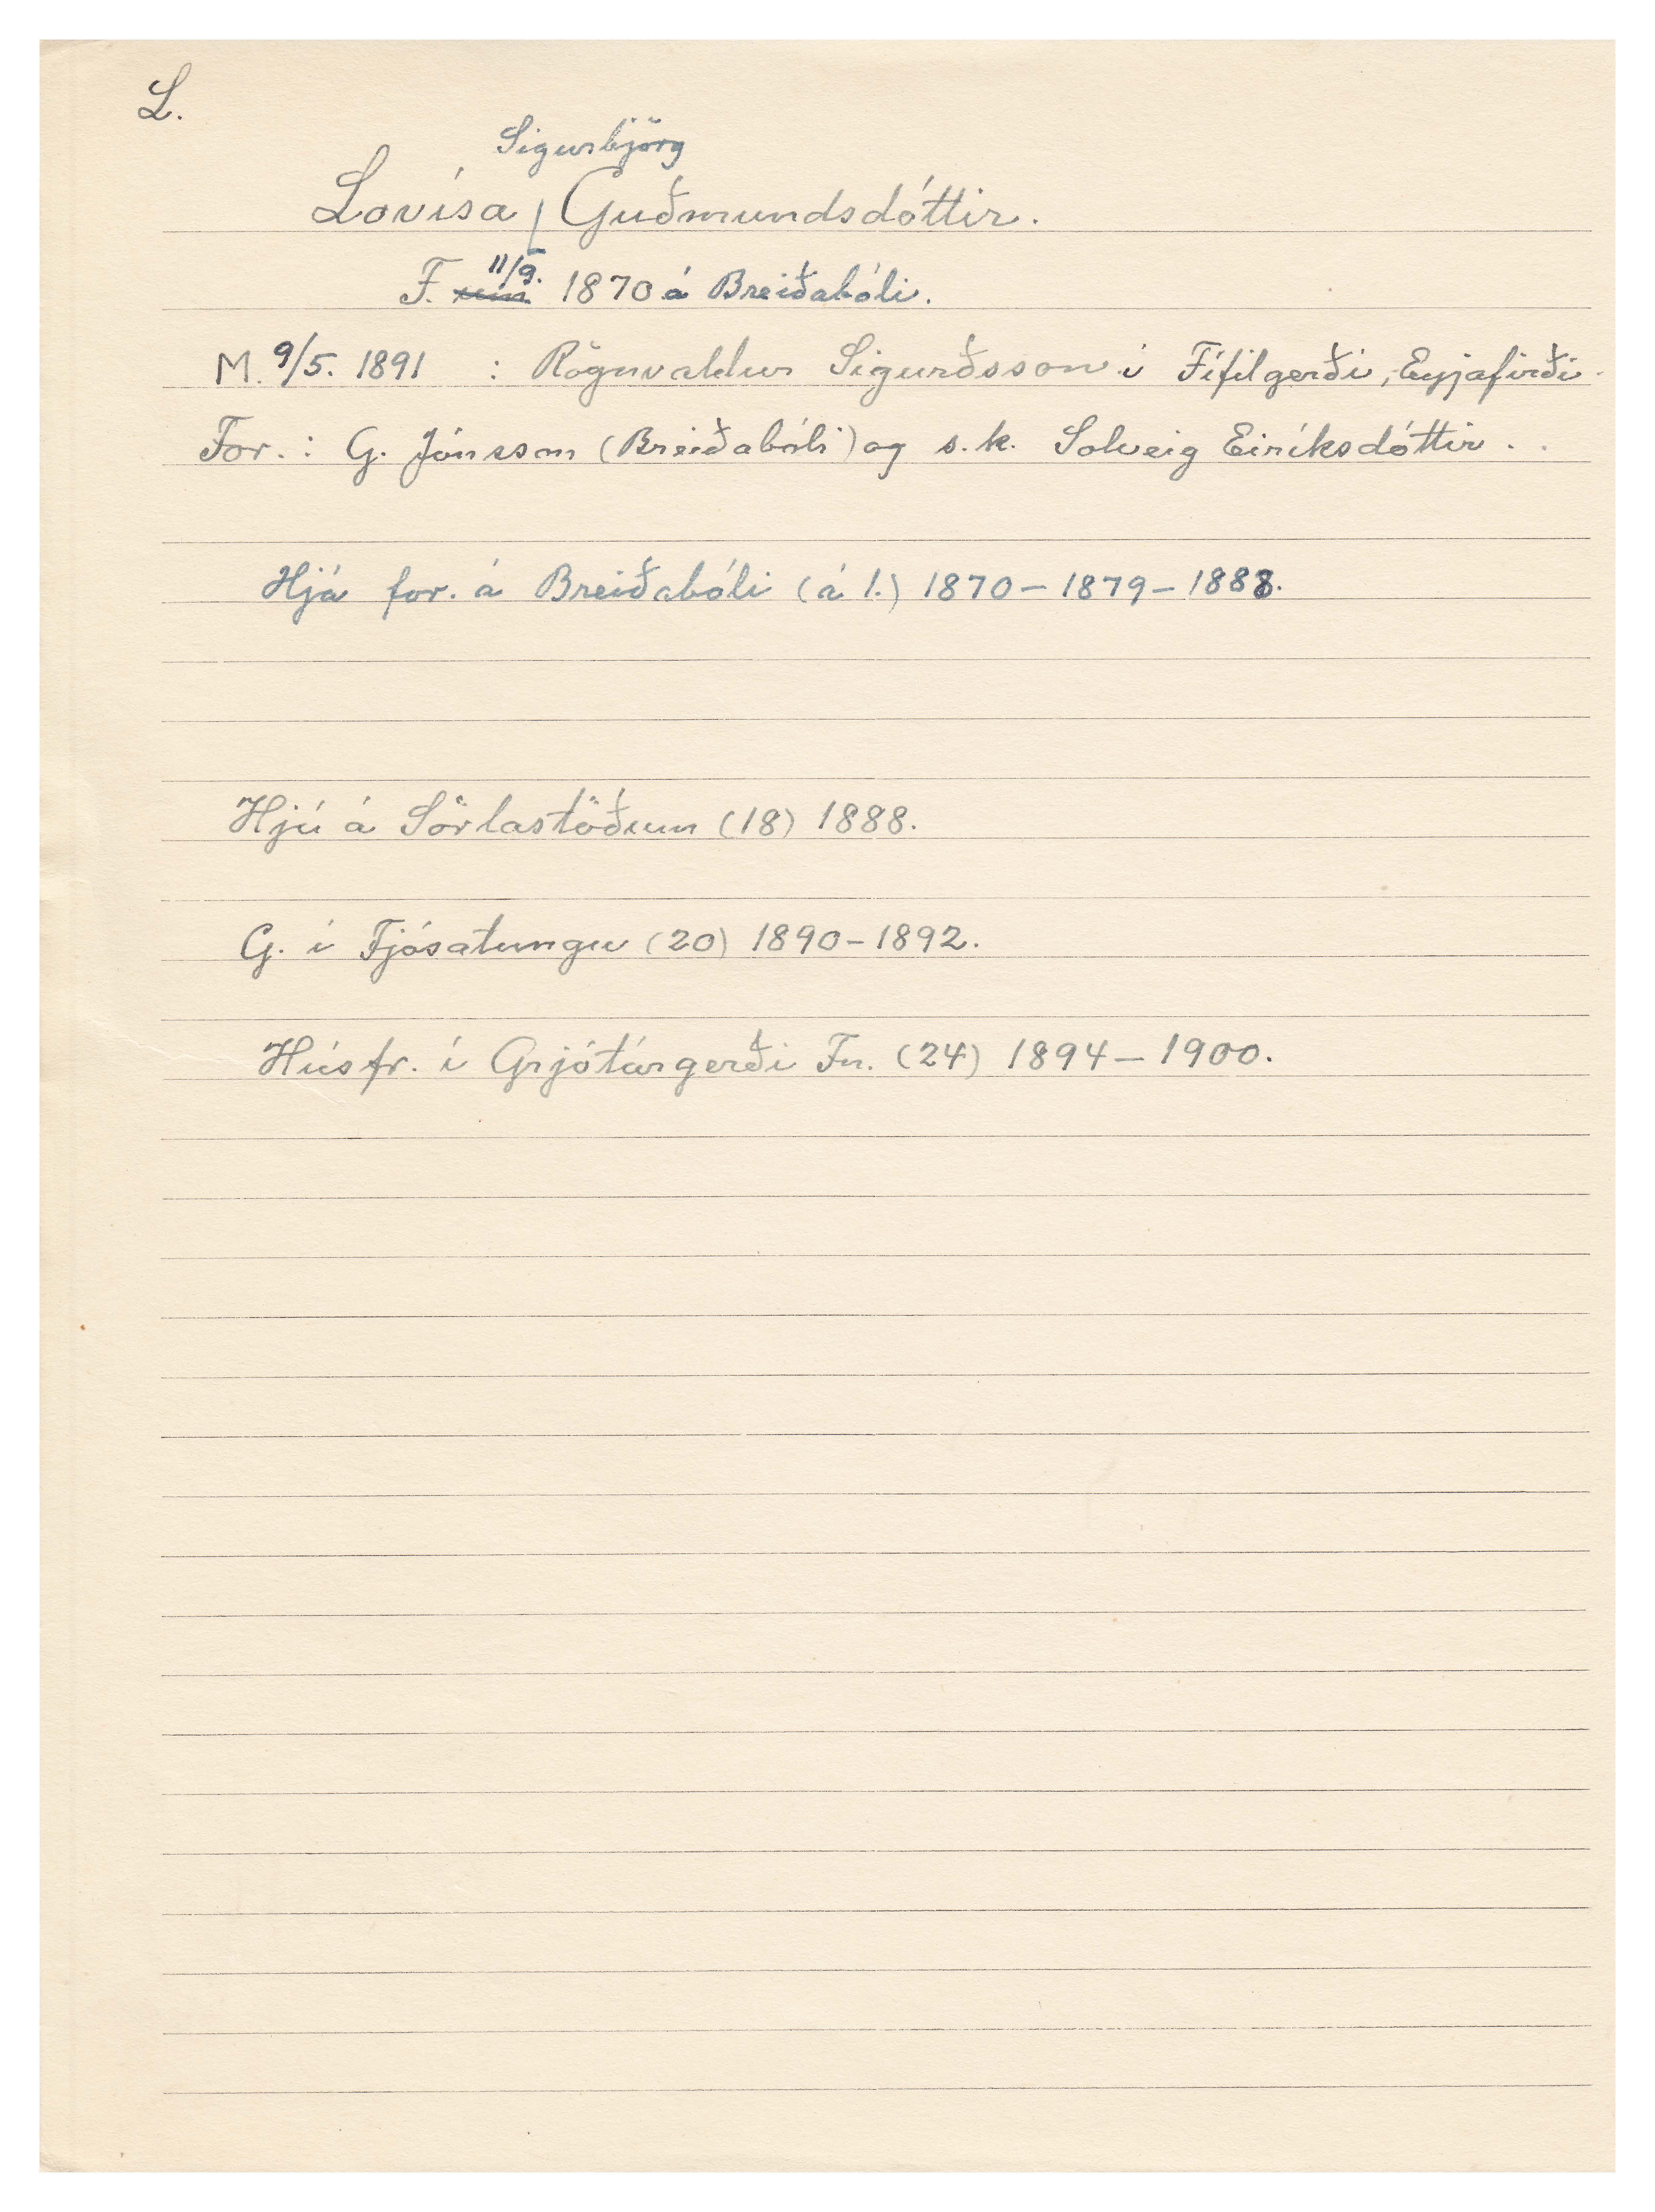 L.
Sigurbjörg
Lovísa Guðmundsdóttir.
F. 11/9. 1870 á Breiðabóli.
M. 9/5. 1891 : Rögnvaldur Sigurðsson í Fífilgerði, Eyjafirði.
For.: G. Jónsson (Breiðabóli) og s.k. Solveig Eiríksdóttir.
Hjá for. á Breiðabóli (á 1.) 1870-1879-1888.
Hjú á Sörlastöðum (18) 1888.
G. í Fjósatungu (20) 1890-1892.
Húsfr. í Grjótárgerði Fn. (24) 1894-1900.